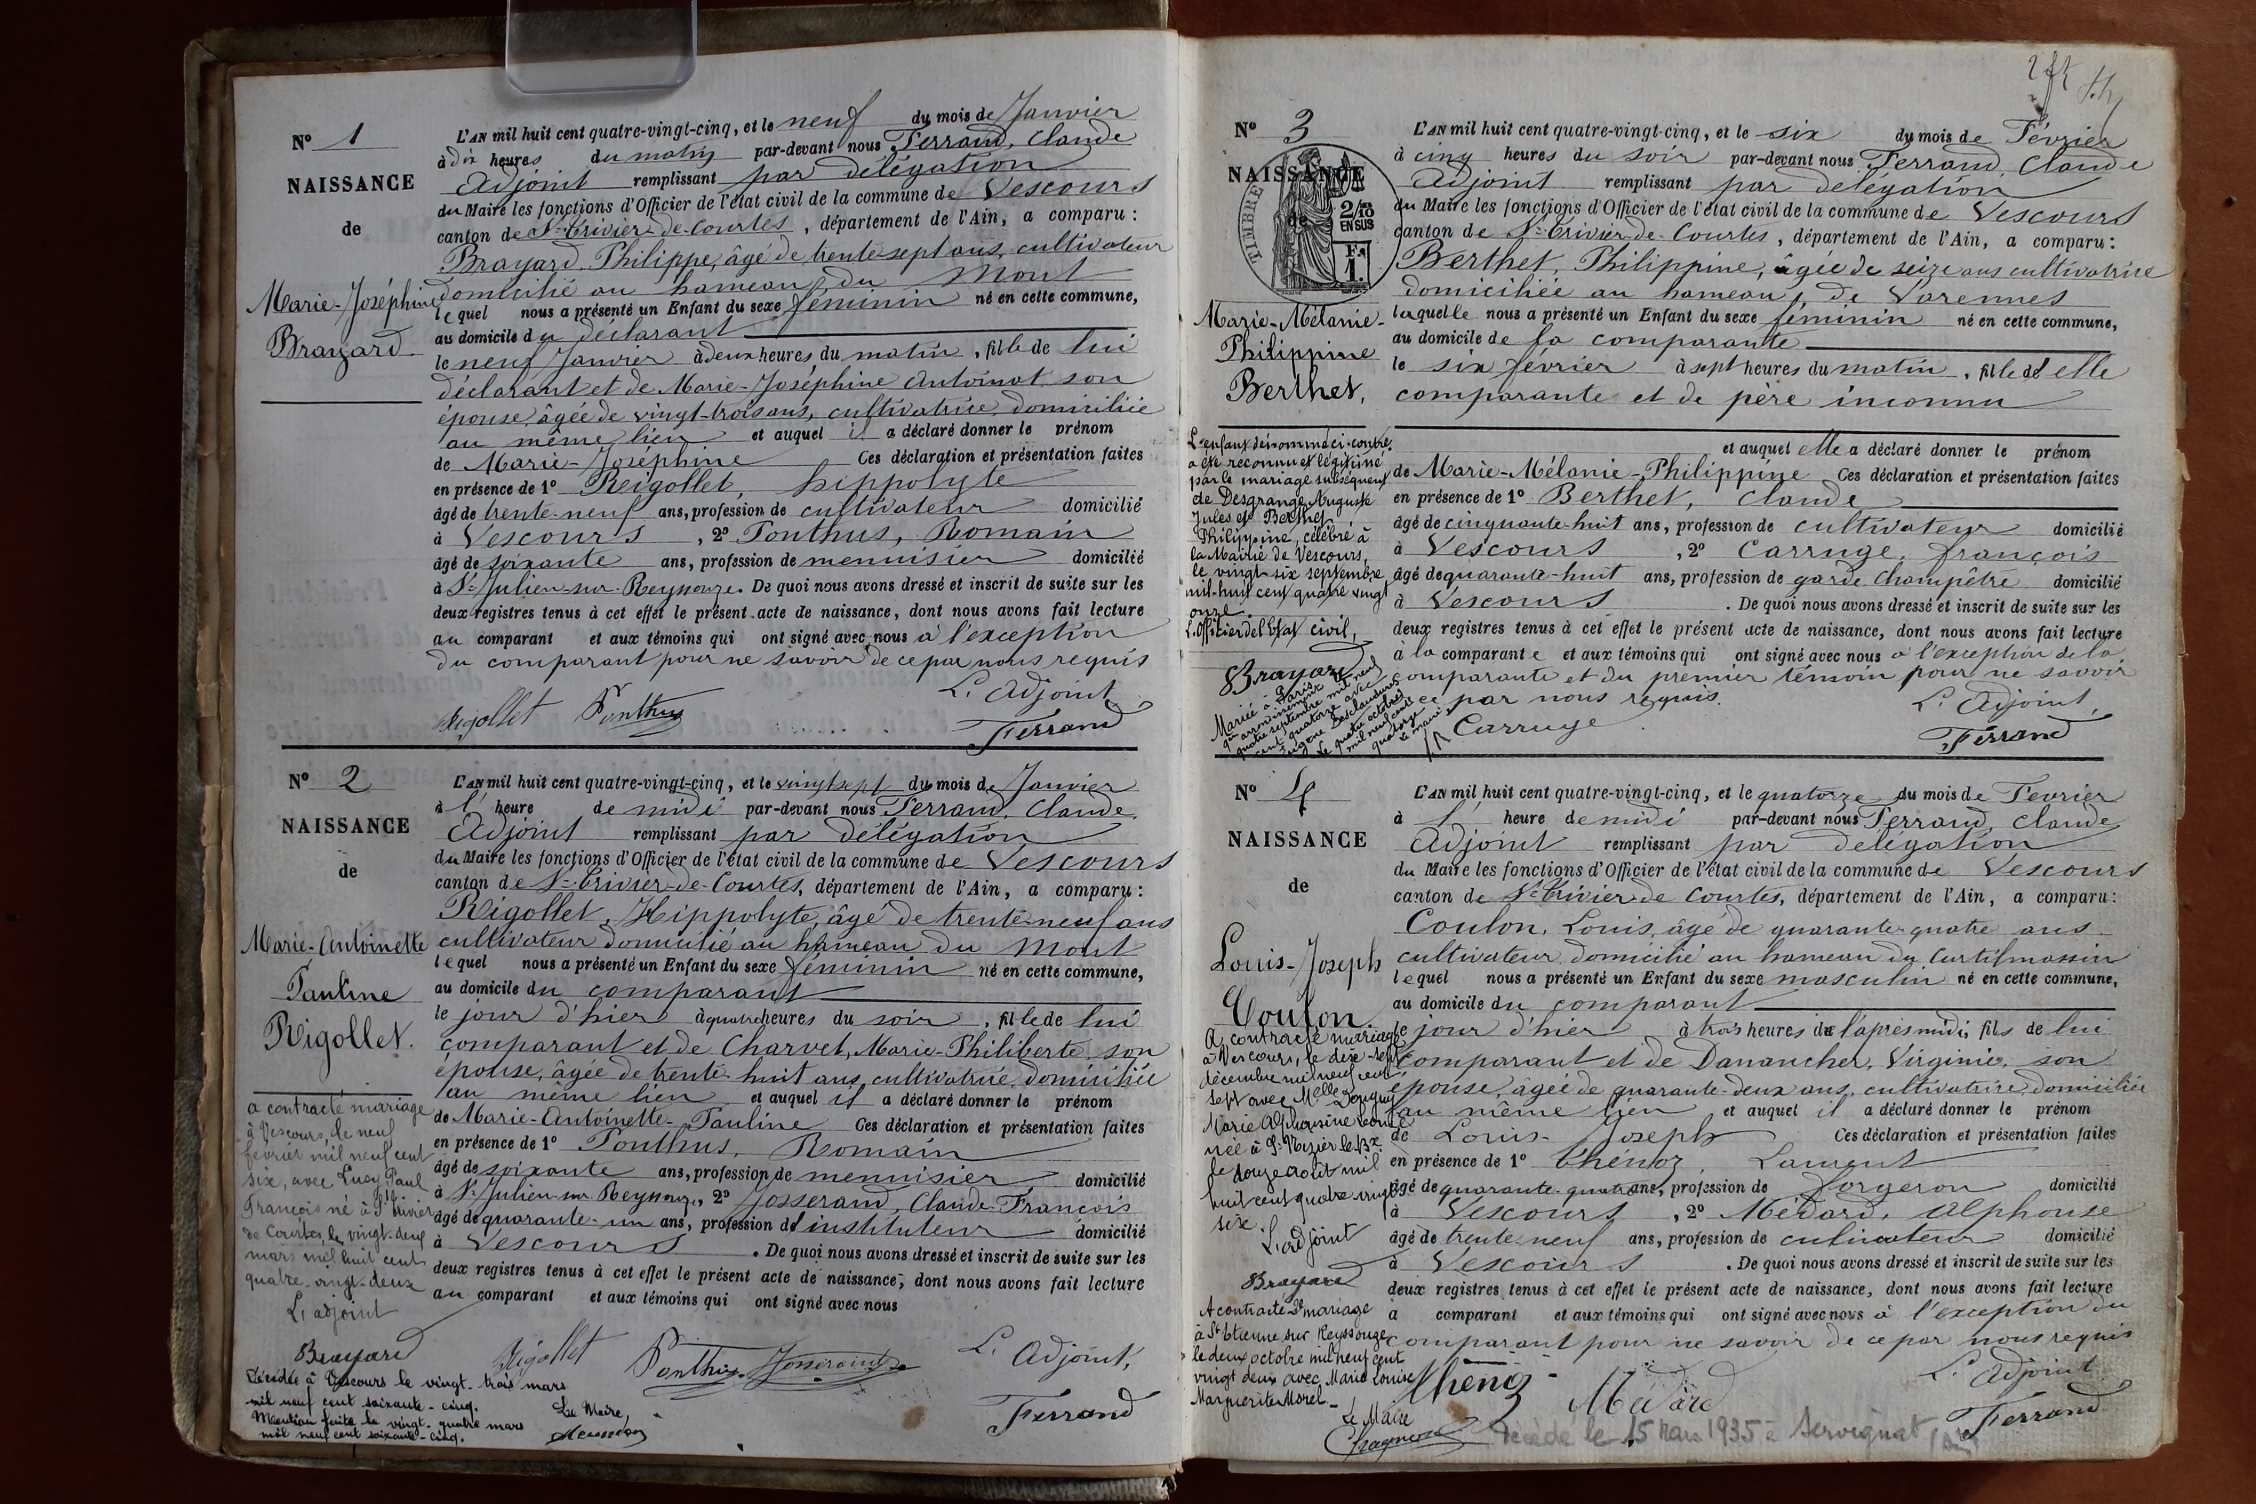 Nº 1
NAISSANCE
de
Marie-Joséphine
Brayard.
L'AN mil huit cent quatre-vingt-cinq, et le neuf du mois de Janvier
à dix heures du matin par-devant nous Ferrand, Claude
Adjoint remplissant par délégation
du Maire les fonctions d'Officier de l'état civil de la commune de Vescours
canton de St-Trivier-de-Courtes, département de l'Ain, a comparu :
Brayard, Philippe, âgé de trente-sept ans, cultivateur
domicilié au hameau du Mont
lequel nous a présenté un Enfant du sexe féminin né en cette commune,
au domicile du déclarant
le neuf Janvier à deux heures du matin, fille de lui
déclarant et de Marie-Joséphine Antoinat son
épouse, âgée de vingt-trois ans, cultivatrice domiciliée
au même lieu et auquel il a déclaré donner le prénom
de Marie-Joséphine Ces déclaration et présentation faites
en présence de 1º Reigollet, hippolyte
âgé de trente-neuf ans, profession de cultivateur domicilié
à Vescours, 2º Ponthus, Romain
âgé de soixante ans, profession de menuisier domicilié
à St-Julien-sur-Reyssouze. De quoi nous avons dressé et inscrit de suite sur les
deux registres tenus à cet effet le présent acte de naissance, dont nous avons fait lecture
au comparant et aux témoins qui ont signé avec nous à l'exception
du comparant pour ne savoir de ce par nous requis
L'Adjoint
Rigollet Ponthus
Ferrand
Nº 2
NAISSANCE
de
Marie-Antoinette
Pauline
Rigollet.
a contracté mariage
à Vescours, le neuf
février mil neuf cent
six, avec Lucy Paul
François né à St Trivier
de Courtes, le vingt-deux
mars mil huit cent
quatre-vingt-deux
L'adjoint
Brayard
Décédée à Vescours le vingt-trois mars
mil neuf cent soixante-cinq.
Mention faite le vingt-quatre mars
mil neuf cent soixante-cinq.
Le Maire,
L'AN mil huit cent quatre-vingt-cinq, et le vingt sept du mois de Janvier
à l' heure de midi par-devant nous Ferrand, Claude,
Adjoint remplissant par délégation
du Maire les fonctions d'Officier de l'état civil de la commune de Vescours
canton de St-Trivier-de-Courtes, département de l'Ain, a comparu :
Rigollet, Hippolyte, âgé de trente-neuf ans
cultivateur domicilié au hameau du Mont
lequel nous a présenté un Enfant du sexe féminin né en cette commune,
au domicile du comparant
le jour d'hier à quatre heures du soir, fille de lui
comparant et de Charvet, Marie-Philiberte, son
épouse, âgée de trente-huit ans cultivatrice, domiciliée
au même lieu et auquel il a déclaré donner le prénom
de Marie-Antoinette-Pauline Ces déclaration et présentation faites
en présence de 1º Ponthus, Romain
âgé de soixante ans, profession de menuisier domicilié
à St-Julien-sur-Reyssouze, 2º Josserand, Claude François
âgé de quarante-un ans, profession d'instituteur domicilié
à Vescours. De quoi nous avons dressé et inscrit de suite sur les
deux registres tenus à cet effet le présent acte de naissance, dont nous avons fait lecture
au comparant et aux témoins qui ont signé avec nous
Rigollet Ponthus Josserand
L'Adjoint,
Ferrand
Nº 3
NAISSANCE
de
TIMBRE
2/10
EN SUS
1 F.
Marie-Mélanie-
Philippine
Berthet,
L'enfant dénommé ci-contre
a été reconnu et légitimé
par le mariage subséquent
de Desgrange, Auguste
Jules et Berthet
Philippine, célébré à
la Mairie de Vescours,
le vingt-six septembre
mil-huit cent quatre vingt
onze.
L'Officier de l'Etat civil,
Brayard
Mariée à Paris
arrondissement le
quatre septembre mil neuf
cent quatorze avec
Eugène Desclaudures
Le quatre octobre
mil neuf cent
quatorze
Le maire
L'AN mil huit cent quatre-vingt-cinq, et le six du mois de Février
à cinq heures du soir par-devant nous Ferrand, Claude
Adjoint remplissant par délégation
du Maire les fonctions d'Officier de l'état civil de la commune de Vescours
canton de St-Trivier-de-Courtes, département de l'Ain, a comparu :
Berthet, Philippine, âgée de seize ans cultivatrice
domiciliée au hameau de Varennes
laquelle nous a présenté un Enfant du sexe féminin né en cette commune,
au domicile de la comparante
le six février à sept heures du matin, fille de elle
comparante et de père inconnu
et auquel elle a déclaré donner le prénom
de Marie-Mélanie-Philippine Ces déclaration et présentation faites
en présence de 1º Berthet, Claude
âgé de cinquante-huit ans, profession de cultivateur domicilié
à Vescours, 2º Carruge, françois
âgé de quarante-huit ans, profession de garde Champêtre domicilié
à Vescours. De quoi nous avons dressé et inscrit de suite sur les
deux registres tenus à cet effet le présent acte de naissance, dont nous avons fait lecture
à la comparante et aux témoins qui ont signé avec nous à l'exception de la
comparante et du premier témoin pour ne savoir
ce par nous requis.
L'Adjoint,
Carruge
Ferrand
Nº 4
NAISSANCE
de
Louis-Joseph
Coulon.
A contracté mariage
à Vescours, le dix-sept
décembre mil neuf cent
sept avec Melle Donguy
Marie Alphonsine
née à St-Nizier-le-Bx
le douze août mil
huit cent quatre-vingt
six.
L'adjoint
Brayard
A contracté 2e mariage
à St Etienne sur Reyssouze
le deux octobre mil neuf cent
vingt deux avec Marie Louise
Marguerite Morel
Le Maire
L'AN mil huit cent quatre-vingt-cinq, et le quatorze du mois de Février
à l' heure de midi par-devant nous Ferrand, Claude
Adjoint remplissant par délégation
du Maire les fonctions d'Officier de l'état civil de la commune de Vescours
canton de St-Trivier-de Courtes, département de l'Ain, a comparu :
Coulon, Louis, âgé de quarante-quatre ans
cultivateur, domicilié au hameau du Curtilmassin
lequel nous a présenté un Enfant du sexe masculin né en cette commune,
au domicile du comparant
le jour d'hier à trois heures de l'après midi, fils de lui
comparant et de Danancher, Virginie, son
épouse, âgée de quarante-deux ans, cultivatrice, domiciliée
au même lieu et auquel il a déclaré donner le prénom
de Louis-Joseph Ces déclaration et présentation faites
en présence de 1º Thénoz, Laurent
âgé de quarante-quatre ans, profession de forgeron domicilié
à Vescours, 2º Médard, Alphonse
âgé de trente-neuf ans, profession de cultivateur domicilié
à Vescours. De quoi nous avons dressé et inscrit de suite sur les
deux registres tenus à cet effet le présent acte de naissance, dont nous avons fait lecture
à comparant et aux témoins qui ont signé avec nous à l'exception du
comparant pour ne savoir de ce par nous requis
L'Adjoint
Thenoz Médard
Ferrand
Décédé le 15 Mars 1935 à Servignat (Ain)